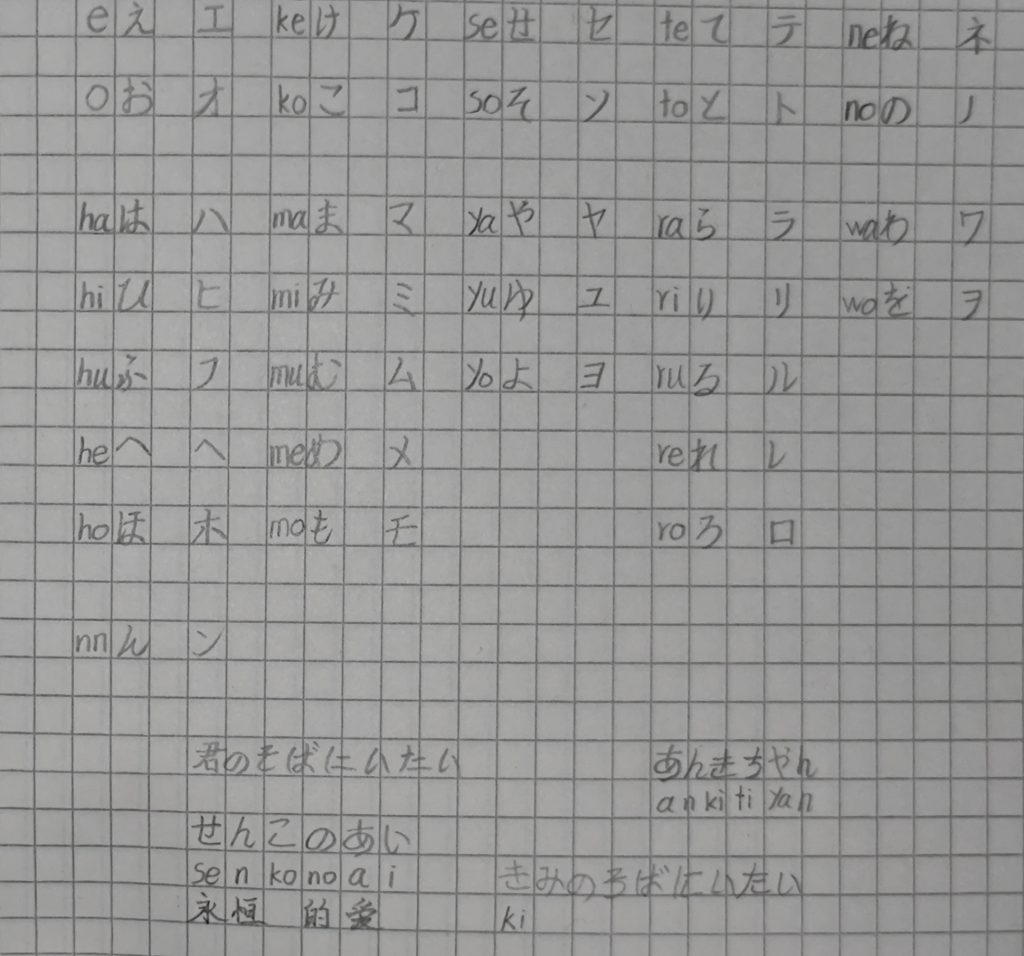 e え エ ke け ケ se せ セ te て テ ne ね ネ
o お オ ko こ コ so そ ソ to と ト no の ノ
ha は ハ ma ま マ ya や ヤ ra ら ラ wa わ ワ
hi ひ ヒ mi み ミ yu ゆ ユ ri り リ wo を ヲ
hu ふ フ mu む ム yo よ ヨ ru る ル
he へ ヘ me め メ re れ レ
ho ほ ホ mo も モ ro ろ ロ
nn ん ン
君のそばにいたい あんきちやん
an ki ti yan
せんこのあい
se n ko no a i きみのそばにいたい
永恒 的爱 ki